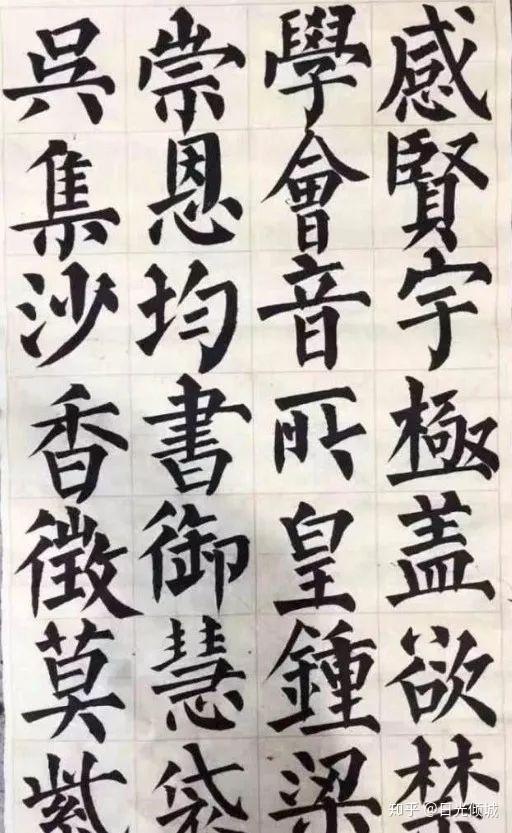 感賢宇極盖欲
學會音所皇鍾梁
崇恩均書御慧袋
吳集沙香徵莫紫
知乎 @日光倾城